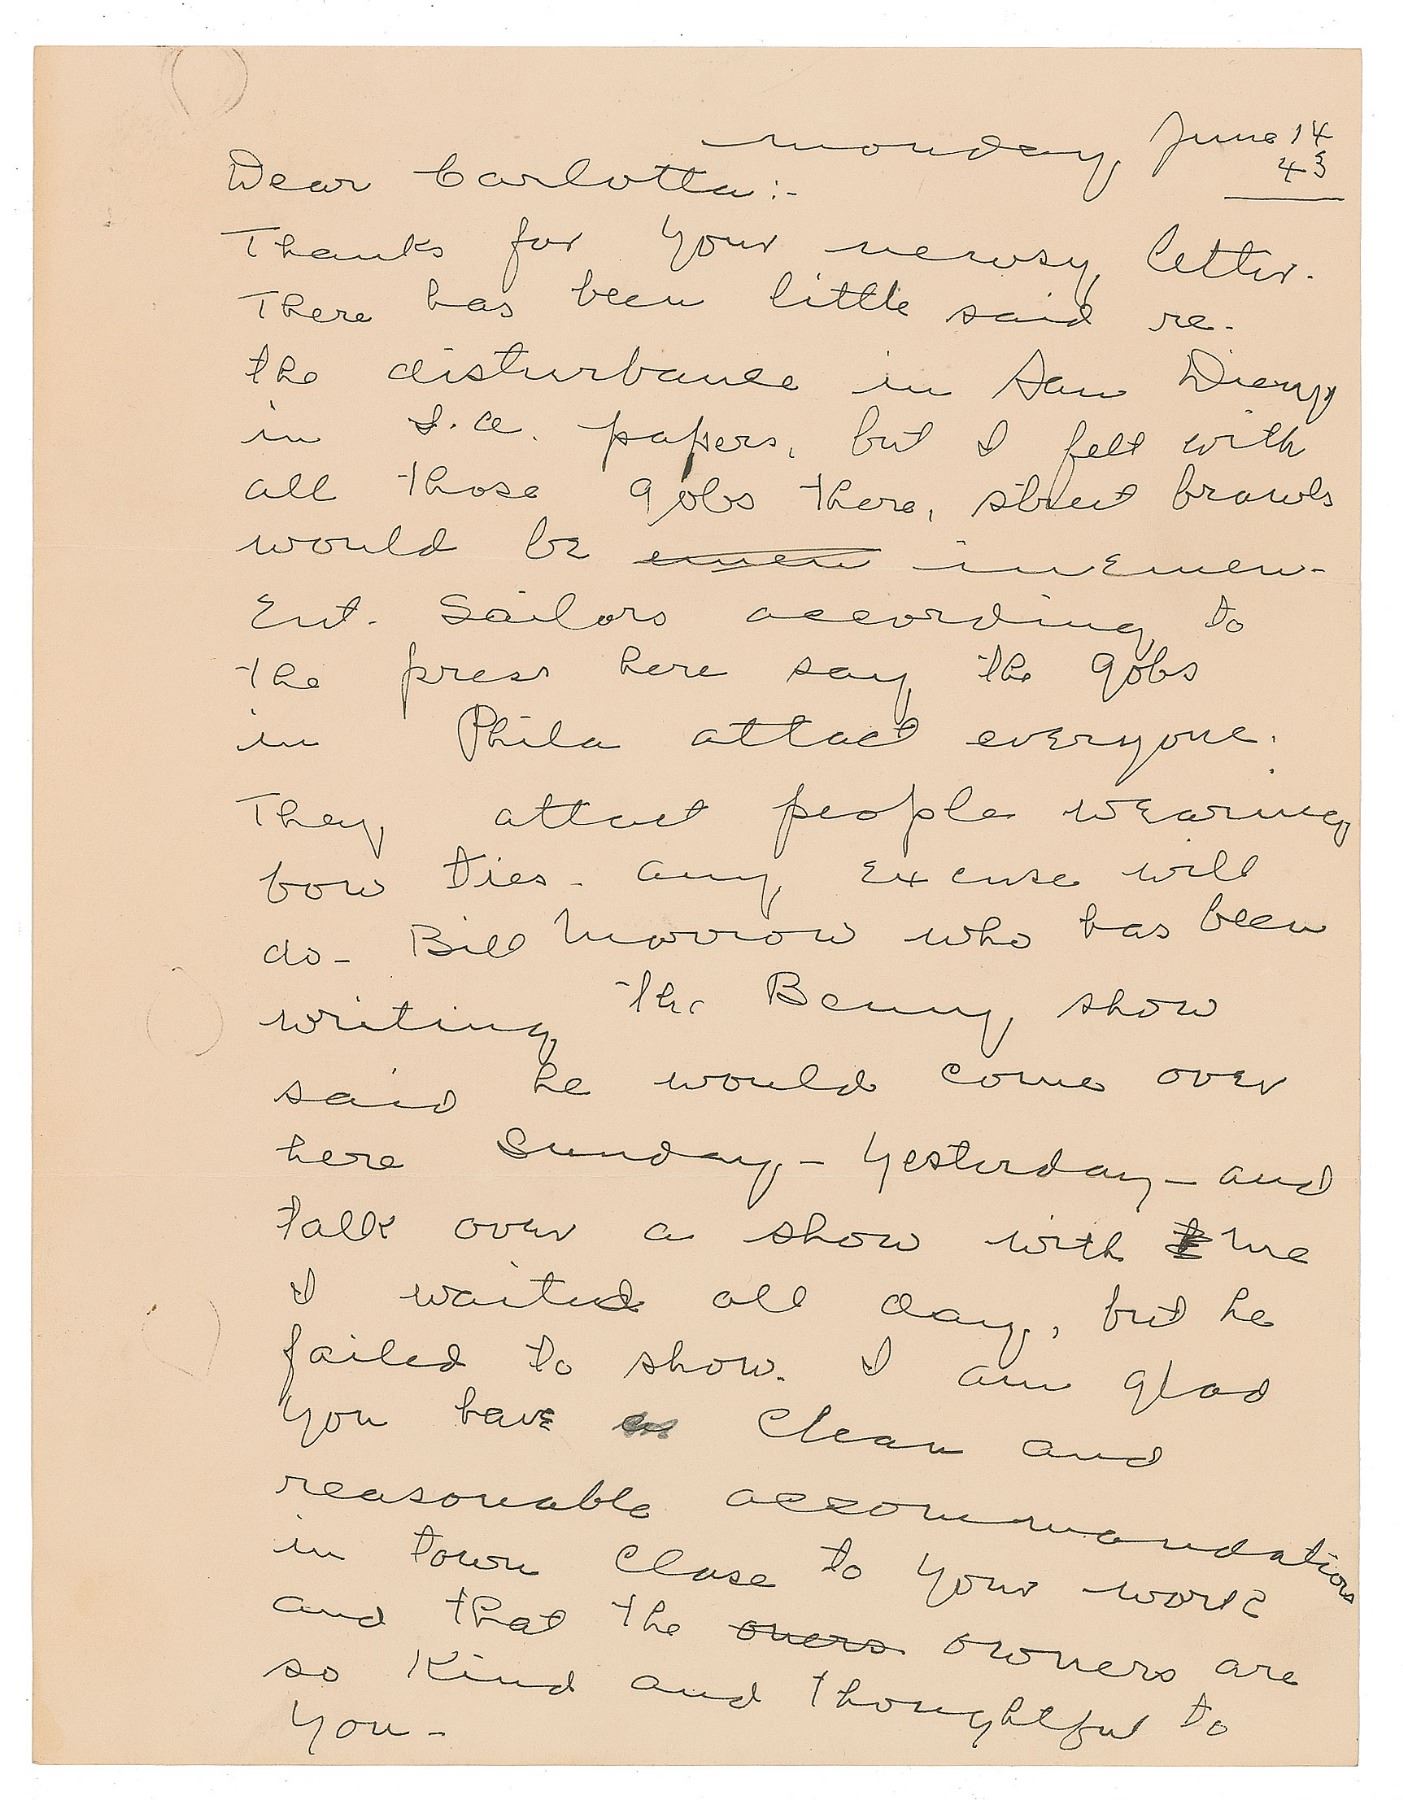 Monday, June 14
43
Dear Carlotta:-
Thanks for your newsy letter.
There has been little said re-
the disturbance in San Diego
in L.A. papers, but I felt with
all those gobs there, street brawls
would be inemen-
ent. Sailors according to
the press here say the gobs
in Phila attact everyone.
They attact people wearing
bow ties - any excuse will
do - Bill Morrow who has been
writing the Benny show
said he would come over
here Sunday - yesterday - and
talk over a show with me
I waited all day, but he
failed to show. I am glad
you have clean and
reasonable accommandations
in town close to your work
and that the oners owners are
so kind and thoughtful to
you -